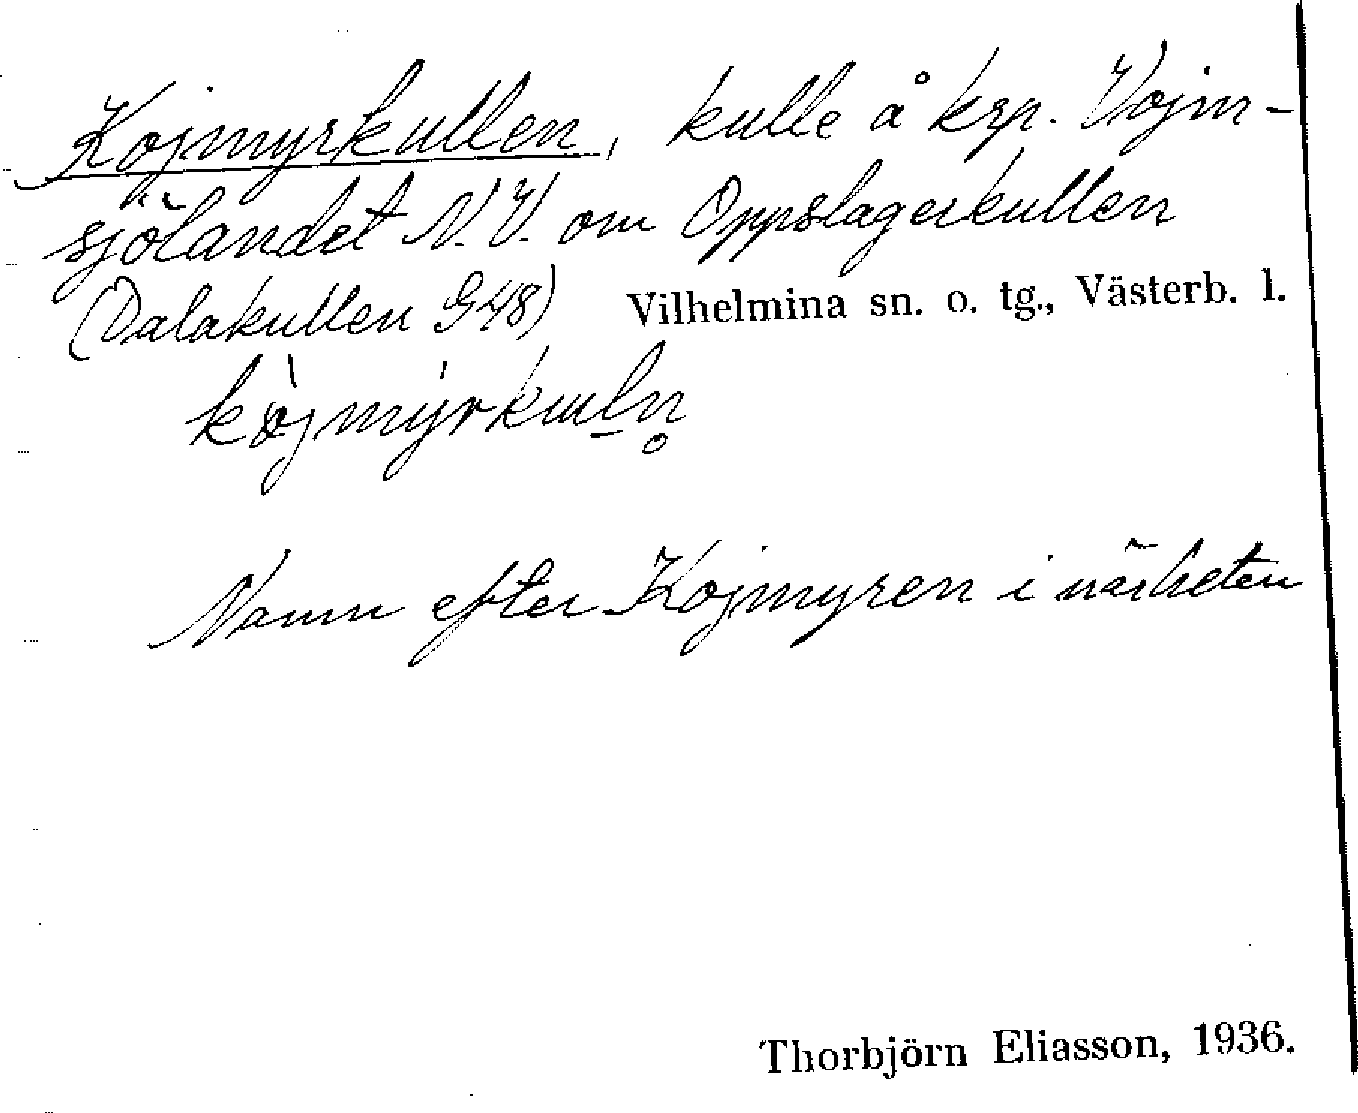 Kojmyrkullen, kulle å krp. Vojm-
sjölandet N.V. om Oppslagerkullen
(Dalakullen G48) Vilhelmina sn. o. tg., Västerb. l.
Namn efter Kojmyren i närheten
Thorbjörn Eliasson, 1936.